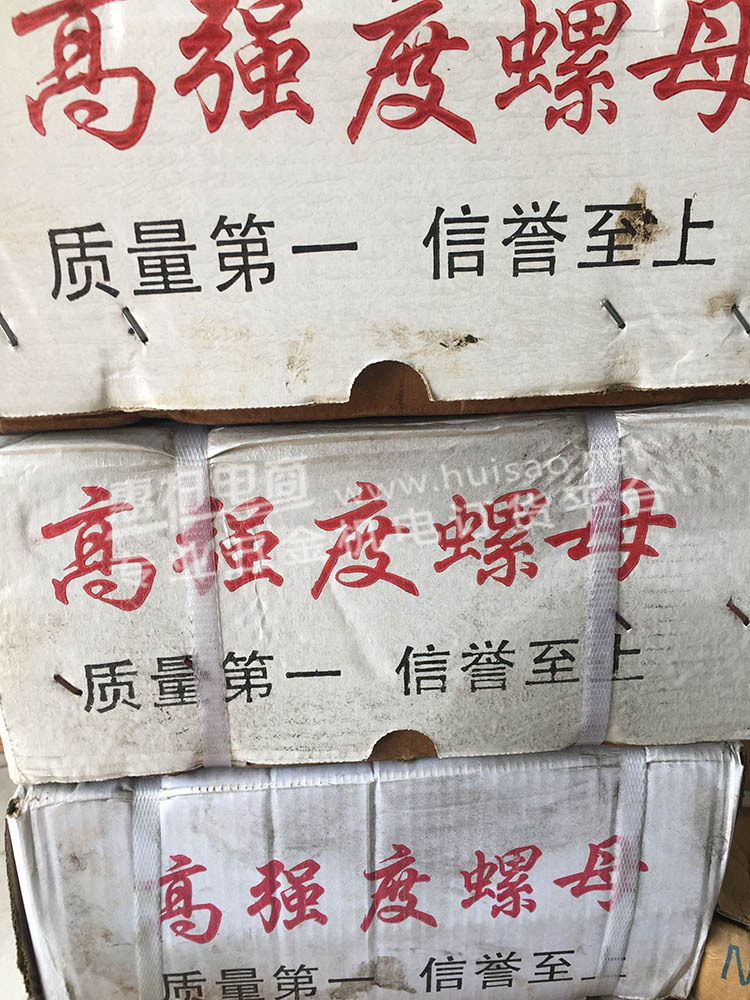 高强度螺母
质量第一 信誉至上
惠搜电商 www.huisao.net
专业五金机电订货平台
高强度螺母
质量第一 信誉至上
高强度螺母
质量第一 信誉至上